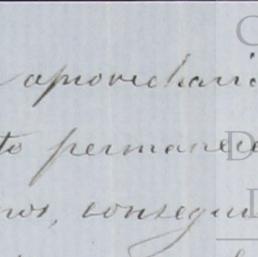 aprovechari
to permanece
nos, consegui